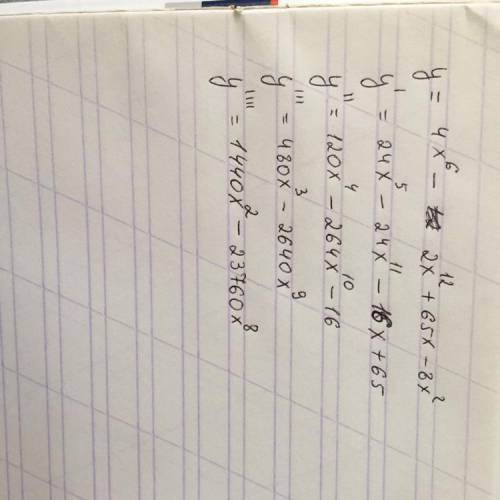 y = 4x⁶ - 2x¹² + 65x - 8x²
y' = 24x⁵ - 24x¹¹ - 16x + 65
y'' = 120x⁴ - 264x¹⁰ - 16
y''' = 480x³ - 2640x⁹
y'''' = 1440x² - 23760x⁸